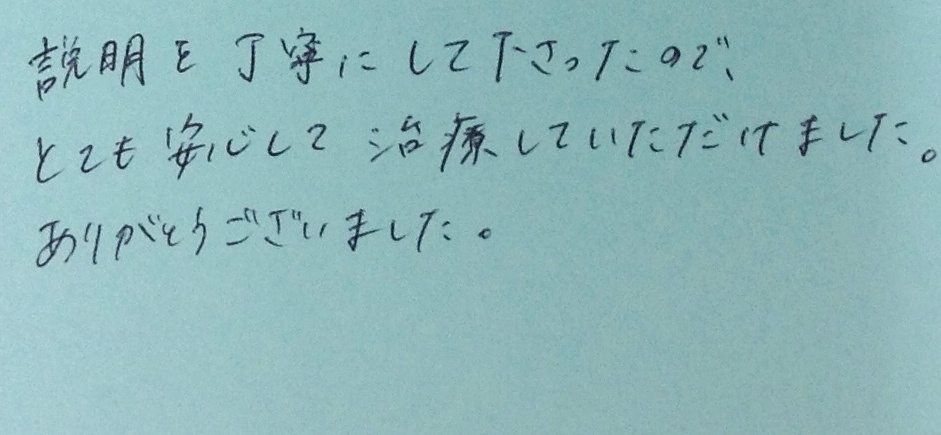 説明を丁寧にして下さったので、
とても安心して治療していただけました。
ありがとうございました。